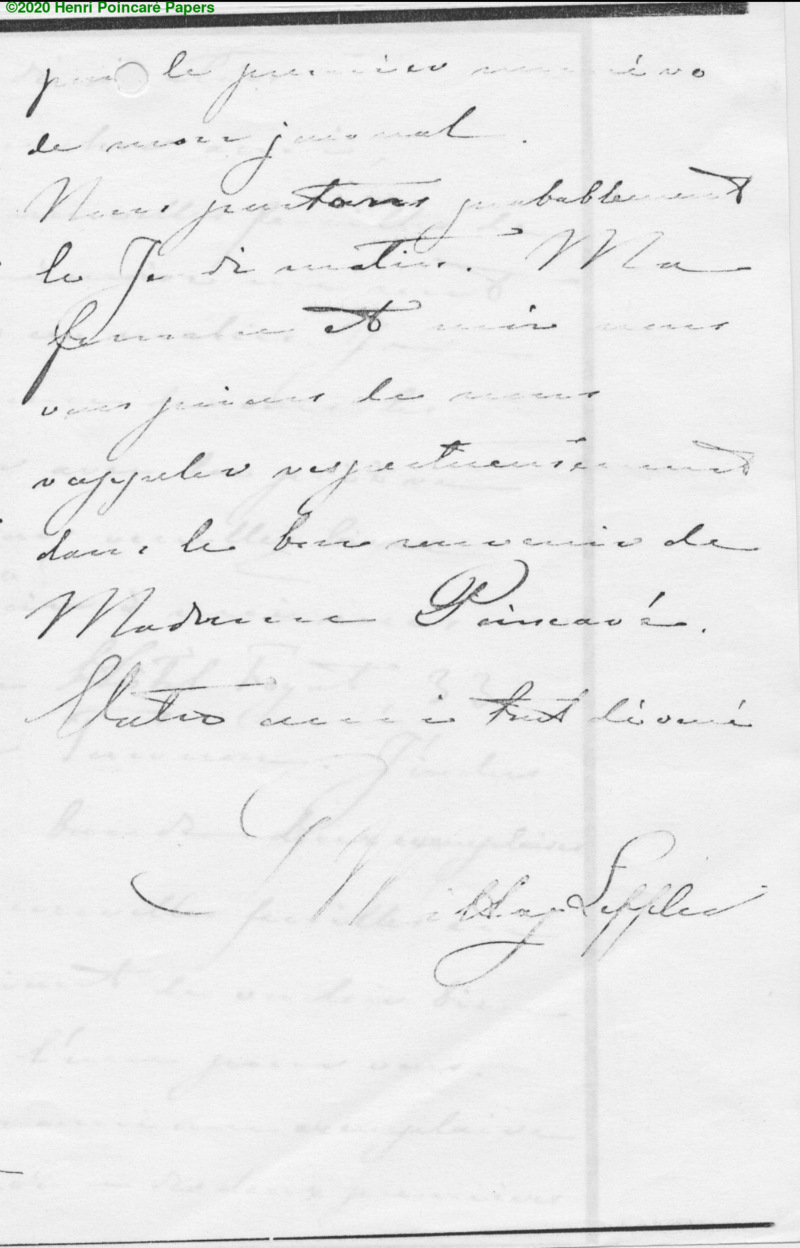 ©2020 Henri Poincaré Papers
pour le premier numéro
de mon journal.
Nous partons probablement
le Jeudi matin. Ma
femme et moi nous
vous prions de nous
rappeler respectueusement
dans le bon souvenir de
Madame Poincaré.
Votre ami tout dévoué
Mittag-Leffler